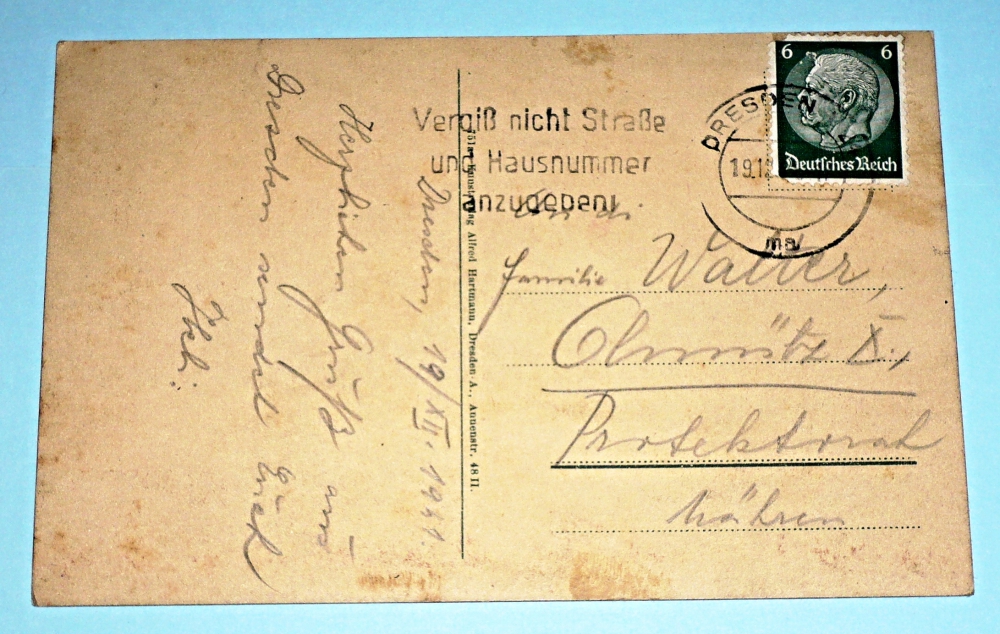 Dresden, 19/XII. 1941.
Herzlichen Gruß aus
Dresden sendet Euch
Vergiß nicht Straße
und Hausnummer
anzugeben!
Kunstverlag Alfred Hartmann, Dresden-A., Annenstr. 48 II.
6 6
Deutsches Reich
DRESDEN
19.12.
An die
Familie Walter,
Olmütz X.,
Protektorat
Mähren